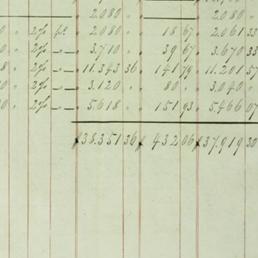 2.080 " 2.080 "
0 " 2% 2.080 " 18 67 2.061 33
0 " 2% " — 3.710 " 39 67 3.670 33
8 " 2% " — 11.343 36 141 79 11.201 57
0 " 2% " — 3.120 " 80 " 3.040 "
0 " 2% " — 5.618 " 151 93 5.466 07
38.351 36 432 06 37.919 30